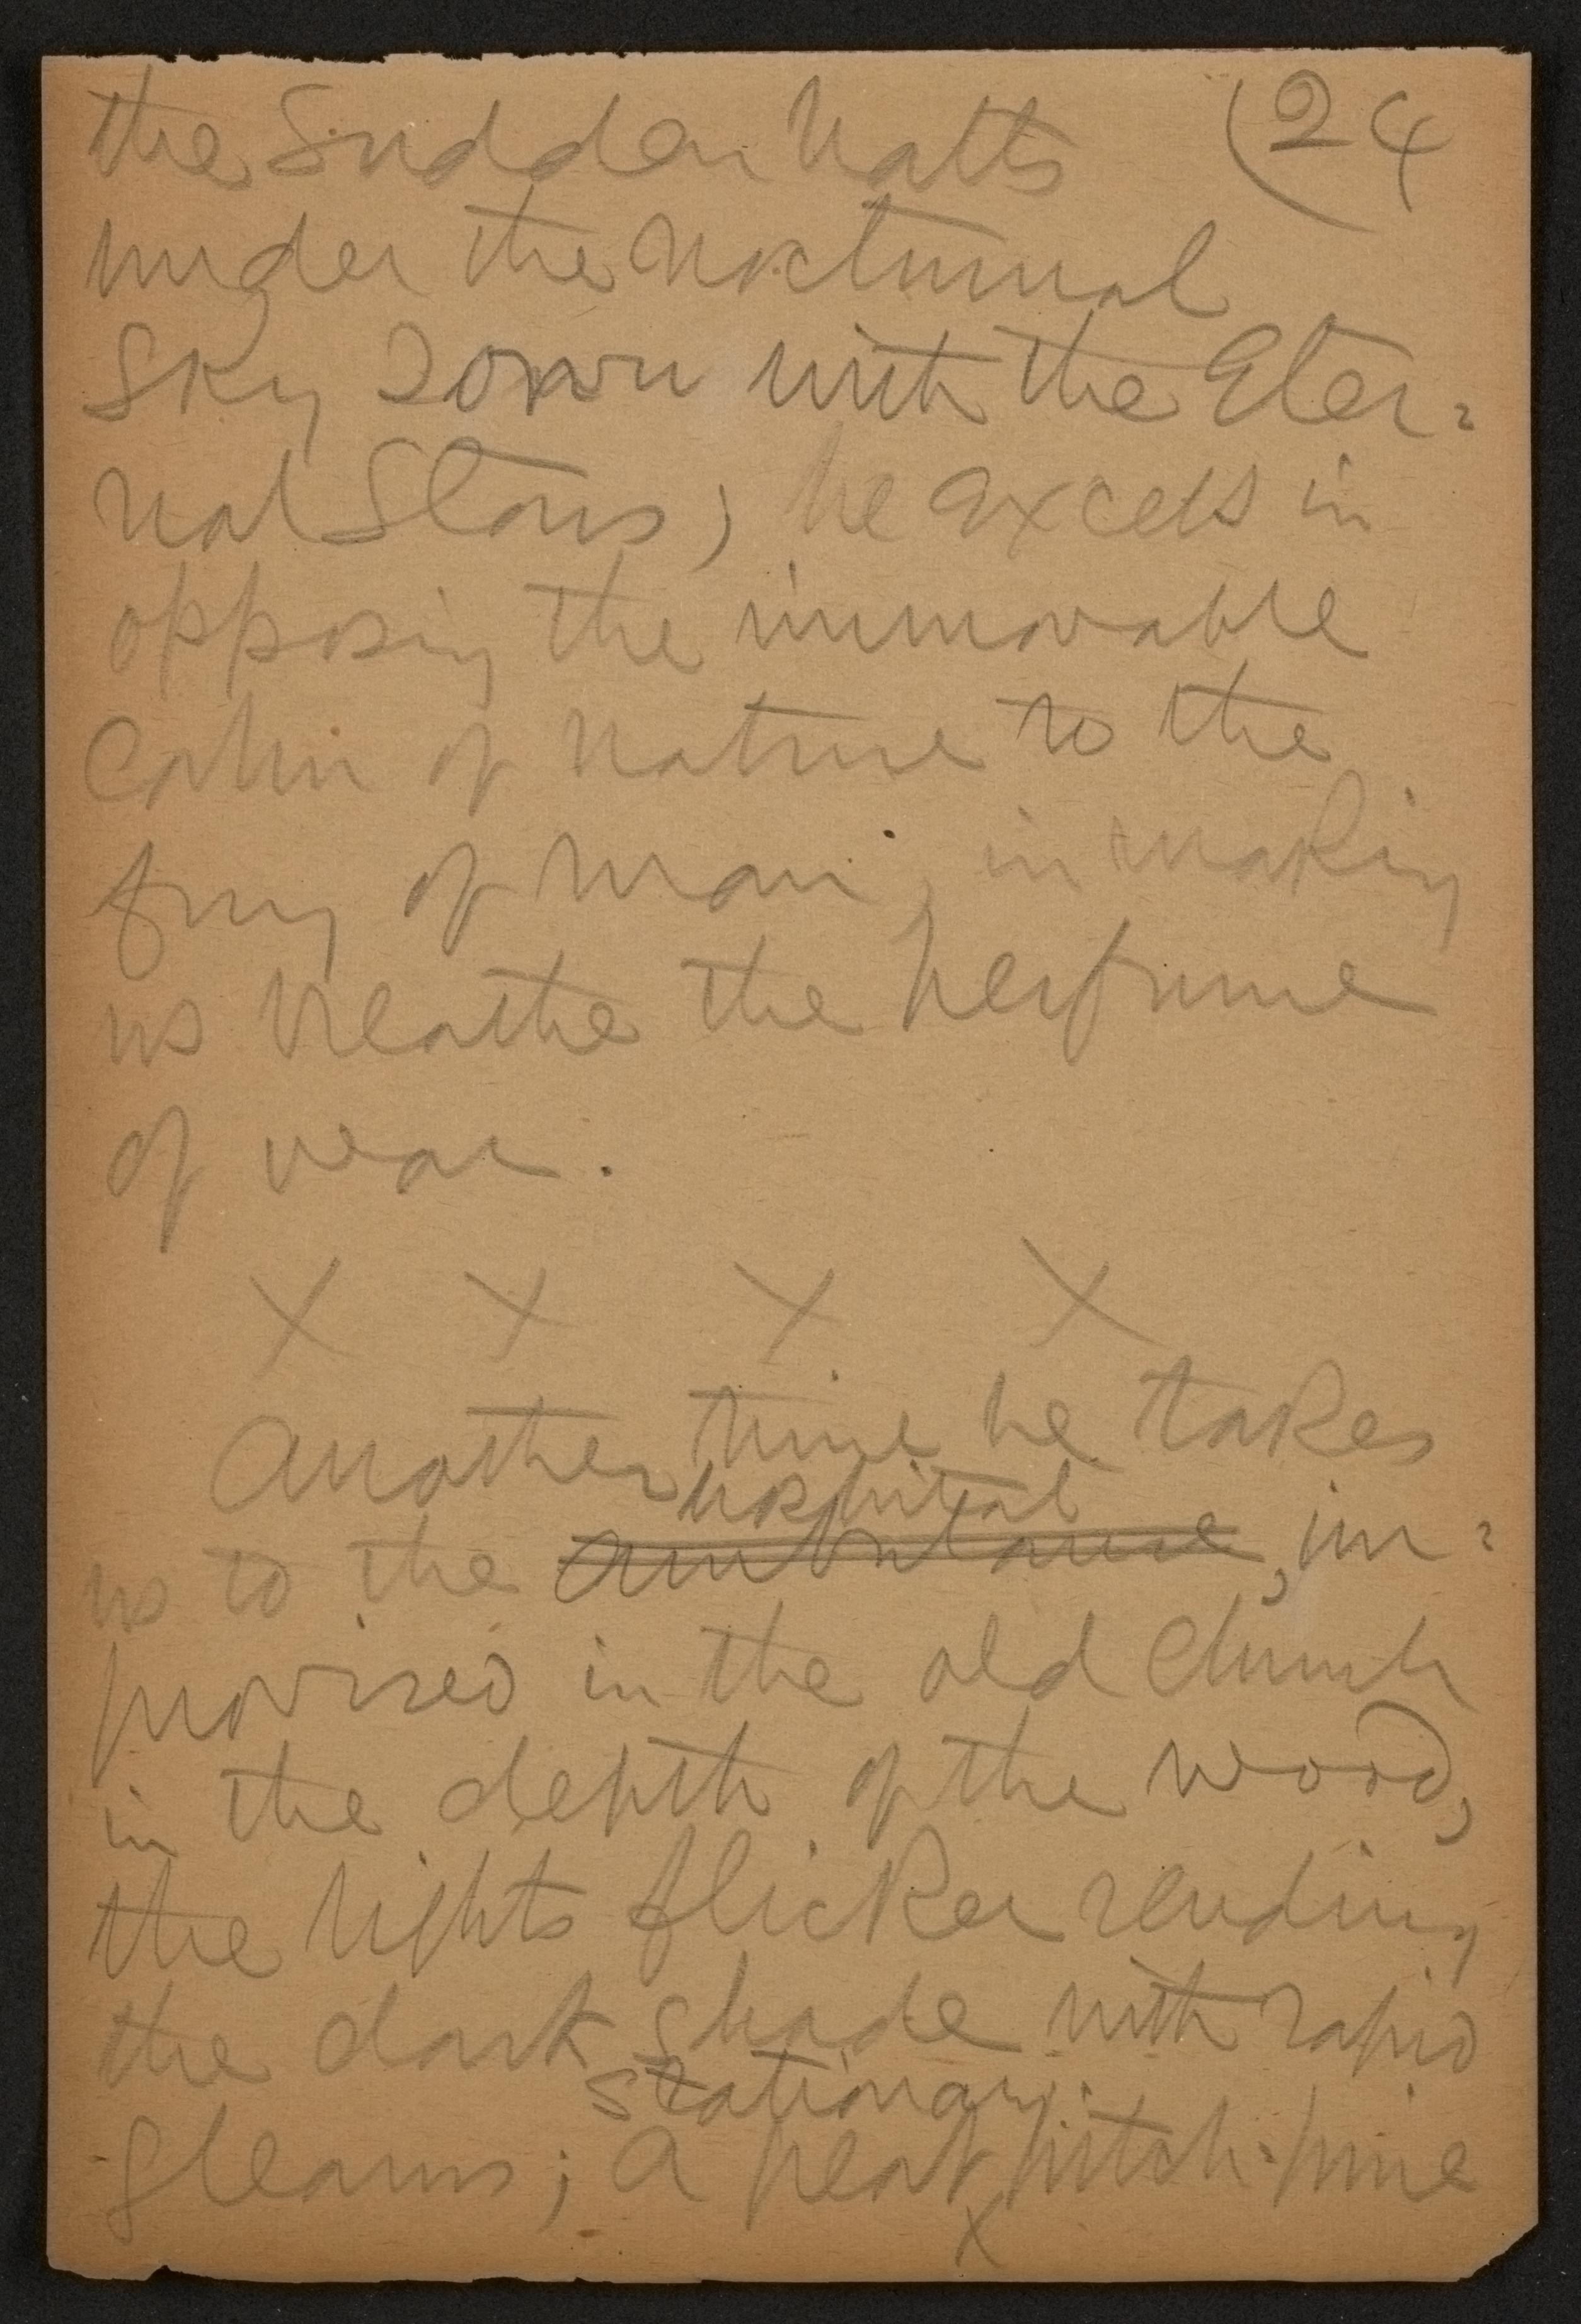 the Sudden halts (24
under the nocturnal
Sky sown with the Eter=
nal Stars; he excels in
opposing the immovable
Calm of nature to the
fury of man, in making
us breathe the perfume
of war.
X X X X
Another time he takes
hospital
us to the ambulance, im=
provised in the old Church
in the depth of the wood,
the lights flicker rending
the dark shade with rapid
stationary
gleams; a great pitch-pine
X